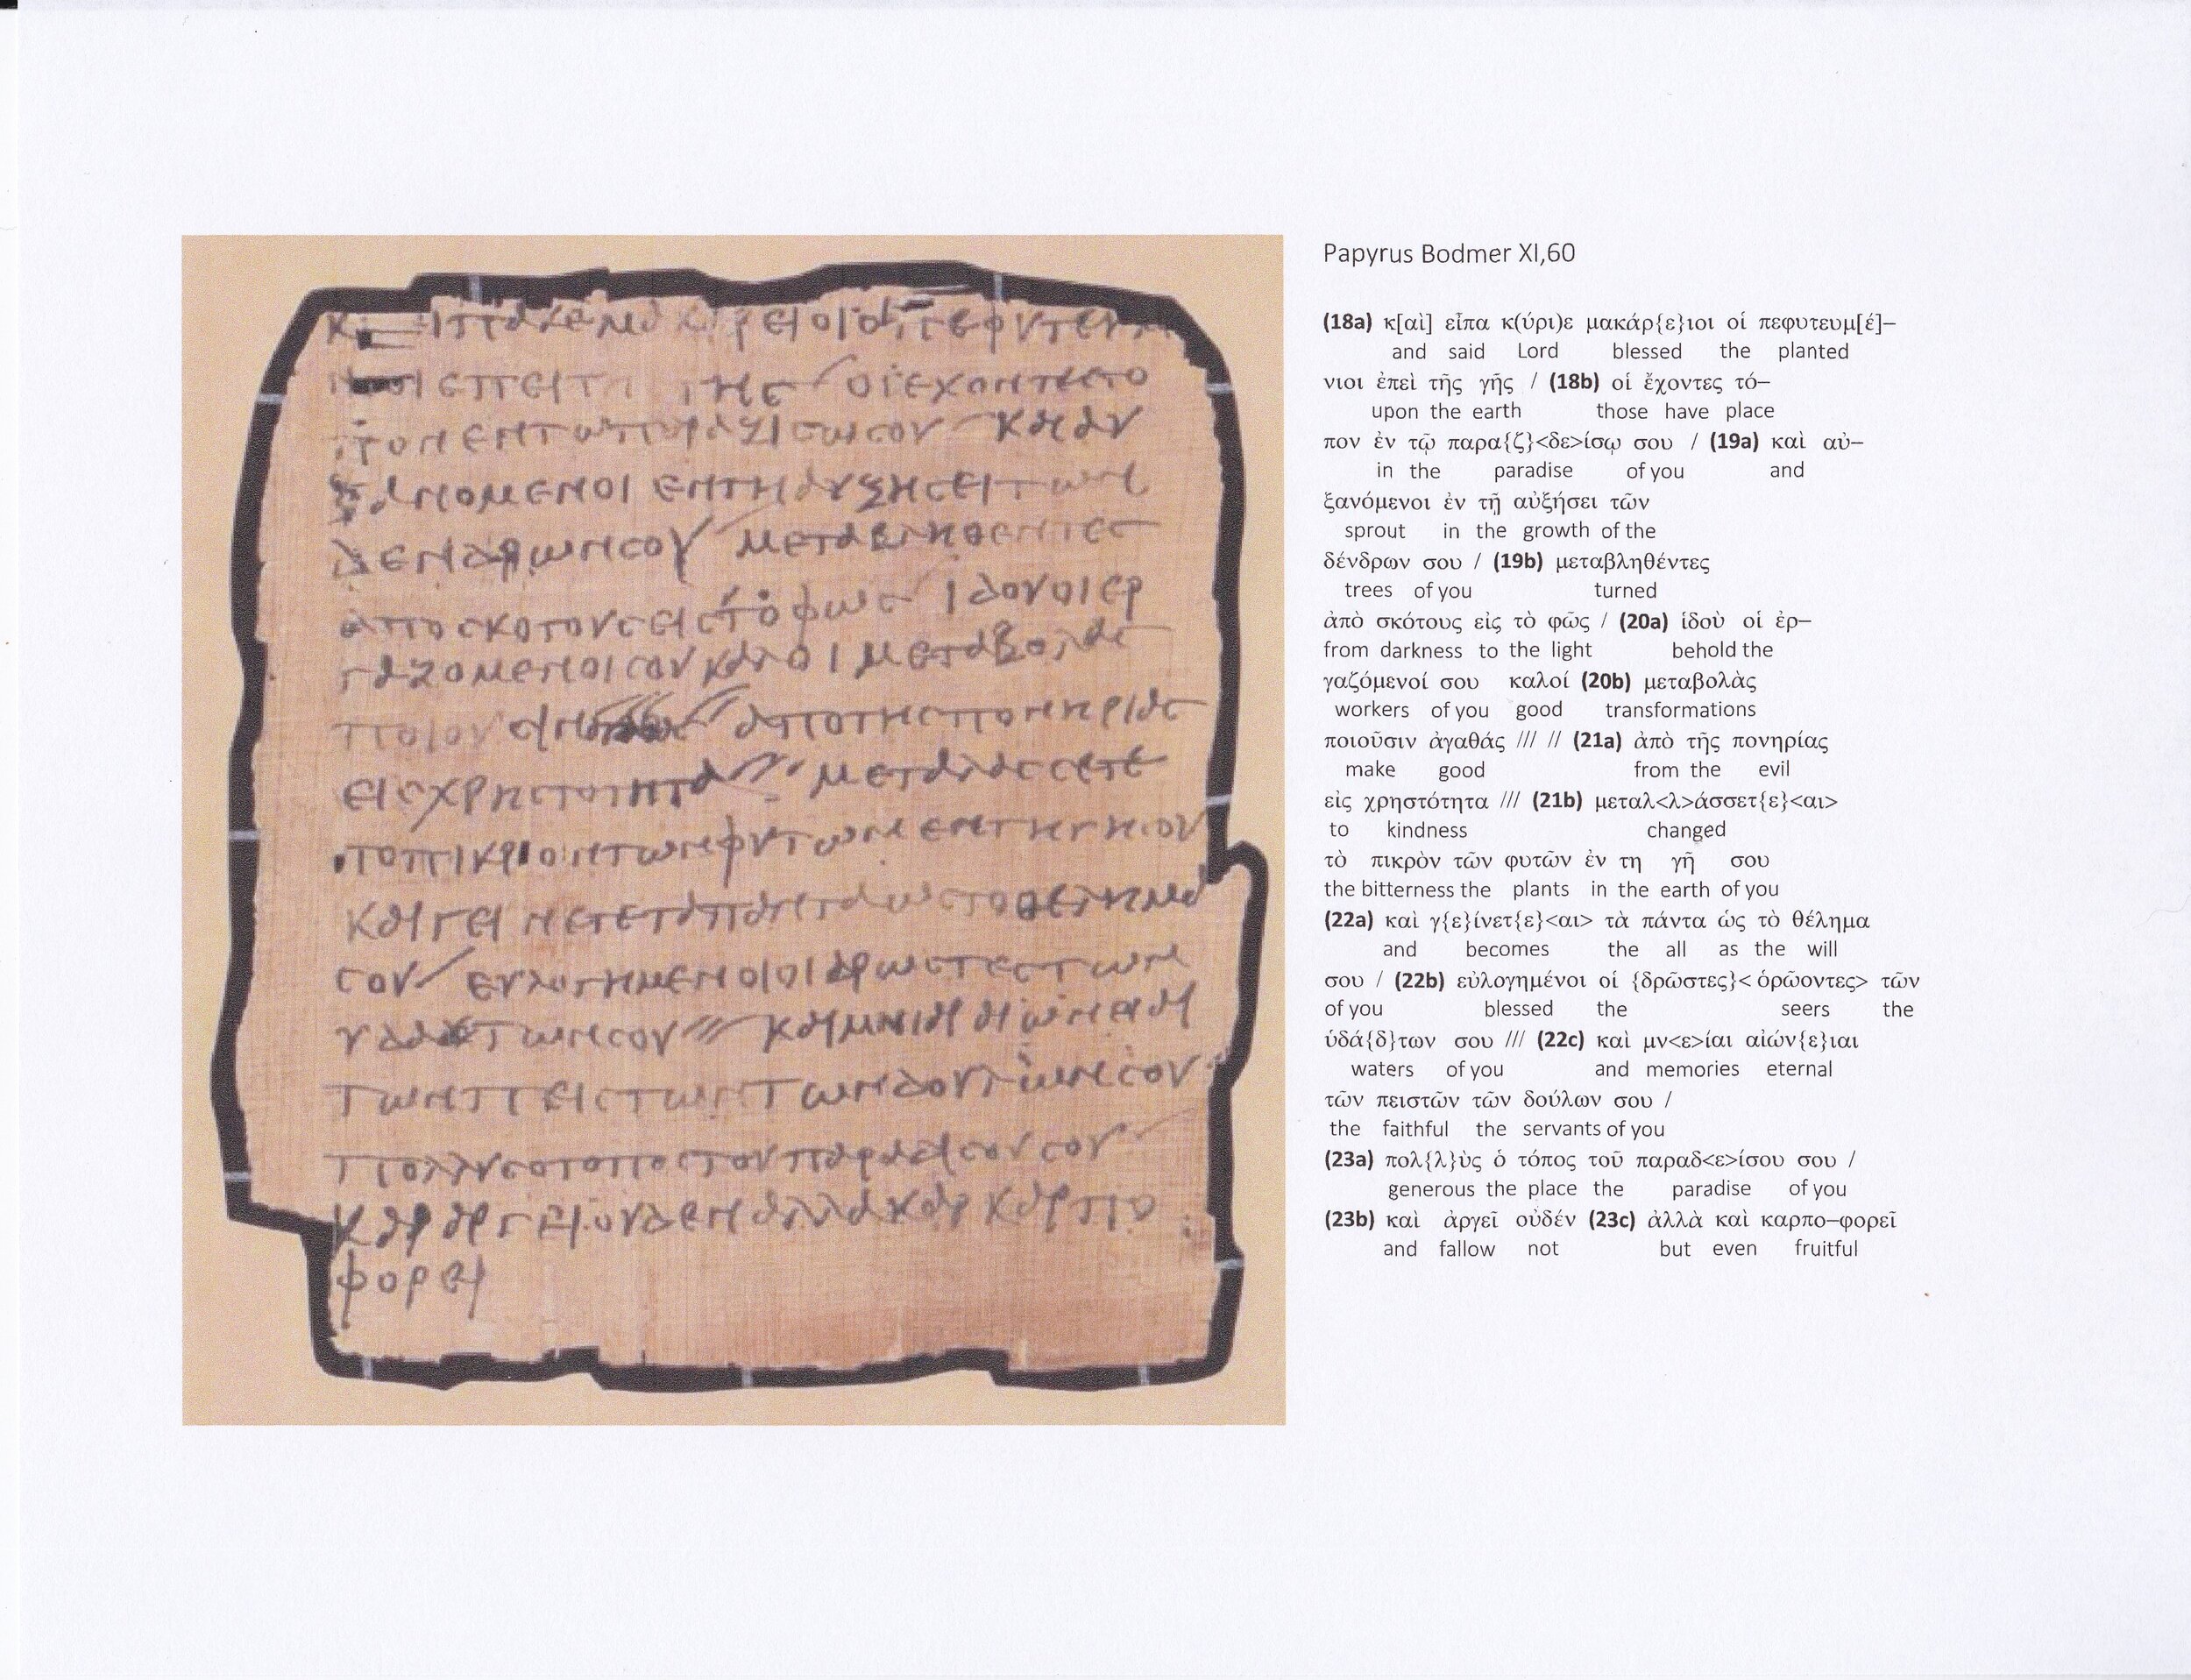 ΟΙΕΧΟΝΤΕϹΤΟ
ϹΟΥ ΚΑΙΑΥ
ΞΑΝΟΜΕΝΟΙ ΕΝΤΗΑΥΞΗϹΕΙΤΩΝ
ΔΕΝΔΡΩΝϹΟΥ ΜΕΤΑΒΛΗΘΕΝΤΕϹ
ΑΠΟϹΚΟΤΟΥϹΕΙϹΤΟΦΩϹ ΙΔΟΥΟΙΕΡ
ΓΑΖΟΜΕΝΟΙϹΟΥΚΑΛΟΙΜΕΤΑΒΟΛΑϹ
ΑΠΟΤΗϹΠΟΝΗΡΙΑϹ
ΕΙϹΧΡΗϹΤΟΤΗΤΑ ΜΕΤΑΛΑϹϹΕΤΕ
ΚΑΙΓΕΙΝΕΤΕΤΑΠΑΝΤΑΩϹΤΟΘΕΛΗΜΑ
ϹΟΥ/ ΕΥΛΟΓΗΜΕΝΟΙΟΙΔΡΩϹΤΕϹΤΩΝ
ΤΩΝΠΕΙϹΤΩΝΤΩΝΔΟΥΛΩΝϹΟΥ
ΠΟΛΛΥϹΟΤΟΠΟϹΤΟΥΠΑΡΑΔΙϹΟΥϹΟΥ
ΚΑΙΑΡΓΕΙΟΥΔΕΝΑΛΛΑΚΑΙΚΑΡΠΟ
ΦΟΡΕΙ
Papyrus Bodmer XI,60
(18a) κ[αὶ] εἶπα κ(ύρι)ε μακάρ{ε}ιοι οἱ πεφυτευμ[έ]–
and said Lord blessed the planted
νιοι ἐπεὶ τῆς γῆς / (18b) οἱ ἔχοντες τό–
upon the earth those have place
πον ἐν τῷ παρα{ζ}<δε>ίσῳ σου / (19a) καὶ αὐ–
in the paradise of you and
ξανόμενοι ἐν τῇ αὐξήσει τῶν
sprout in the growth of the
δένδρων σου / (19b) μεταβληθέντες
trees of you turned
ἀπὸ σκότους εἰς τὸ φῶς / (20a) ἰδοὺ οἱ ἐρ–
from darkness to the light behold the
γαζόμενοί σου καλοί (20b) μεταβολὰς
workers of you good transformations
ποιοῦσιν ἀγαθάς /// // (21a) ἀπὸ τῆς πονηρίας
make good from the evil
εἰς χρηστότητα /// (21b) μεταλ<λ>άσσετ{ε}<αι>
to kindness changed
τὸ πικρὸν τῶν φυτῶν ἐν τη γῇ σου
the bitterness the plants in the earth of you
(22a) καὶ γ{ε}ίνετ{ε}<αι> τὰ πάντα ὡς τὸ θέλημα
and becomes the all as the will
σου / (22b) εὐλογημένοι οἱ {δρῶστες}< ὁρῶοντες> τῶν
of you blessed the seers the
ὑδά{δ}των σου /// (22c) καὶ μν<ε>ίαι αἰών{ε}ιαι
waters of you and memories eternal
τῶν πειστῶν τῶν δούλων σου /
the faithful the servants of you
(23a) πολ{λ}ὺς ὁ τόπος τοῦ παραδ<ε>ίσου σου /
generous the place the paradise of you
(23b) καὶ ἀργεῖ οὐδέν (23c) ἀλλὰ καὶ καρπο–φορεῖ
and fallow not but even fruitful